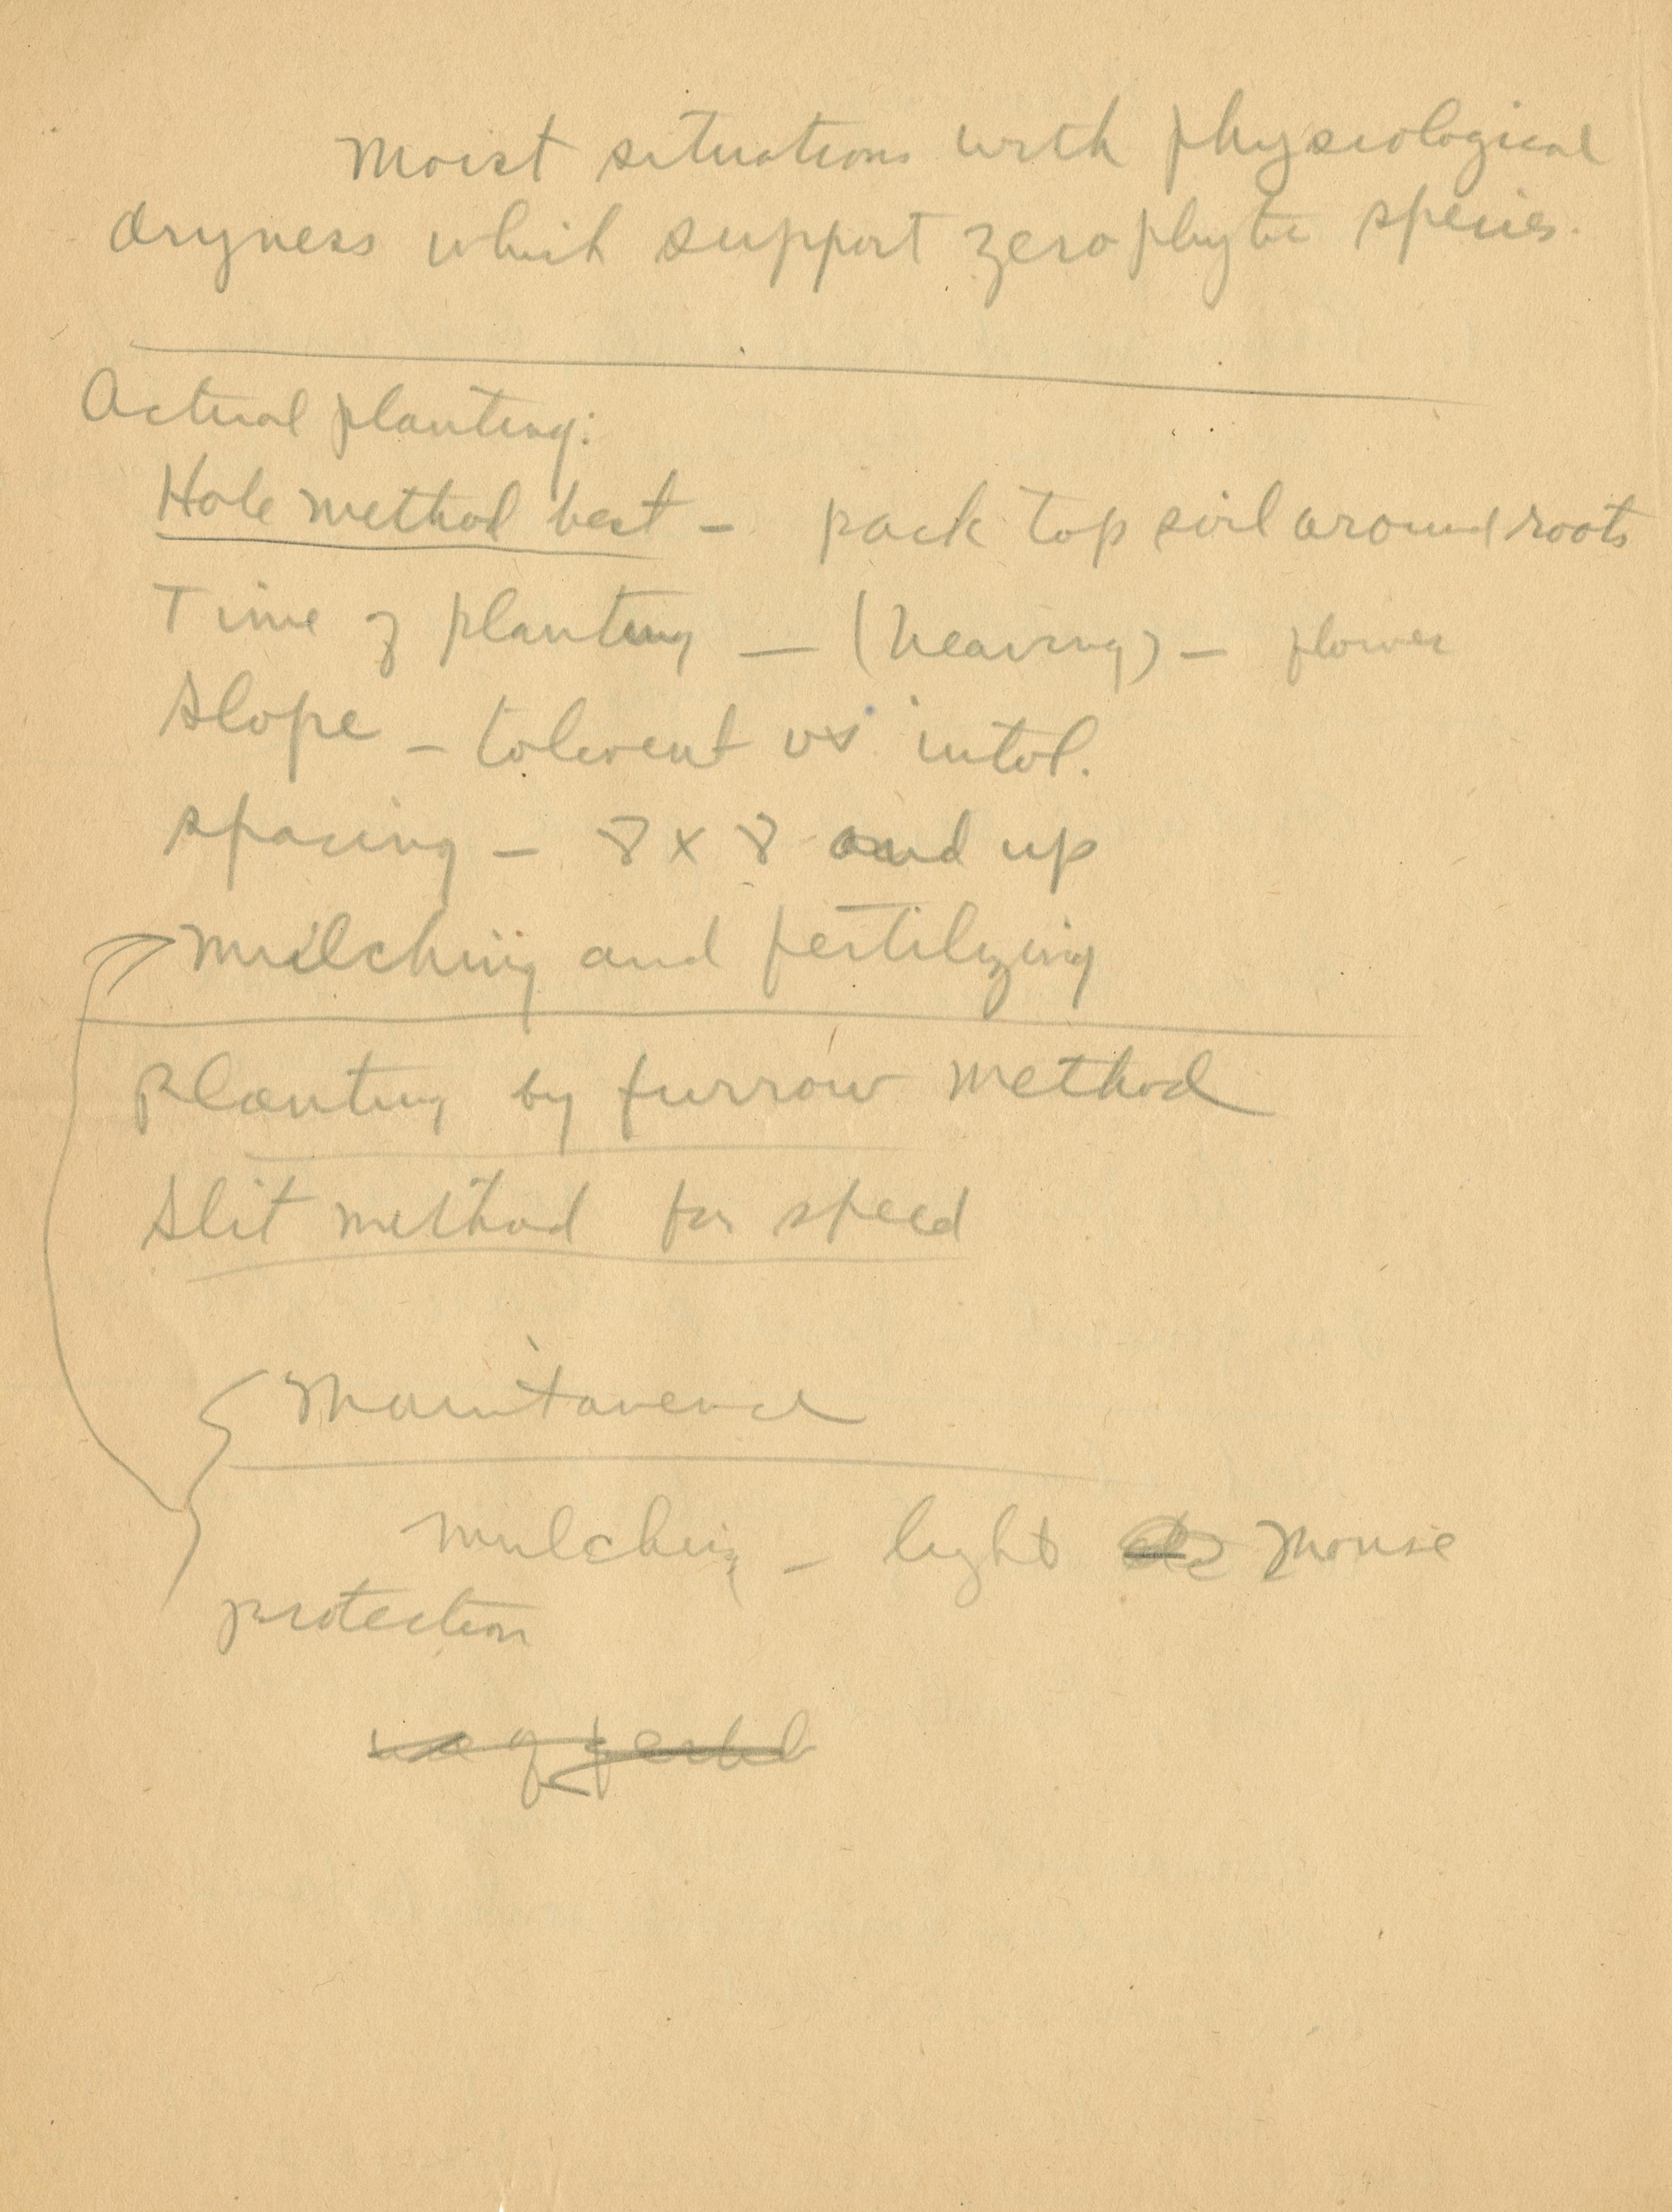 Moist situations with physiological
dryness which support zerophytic species.
Actual planting:
Hole method best - pack top soil around roots
Time of planting - (heaving) - flower
Slope - tolerent vs intol.
spacing - 8 x 8 and up
mulching and fertilizing
Planting by furrow method
Slit method for speed
Maintanence
mulching - light mouse
protection
use of fertil